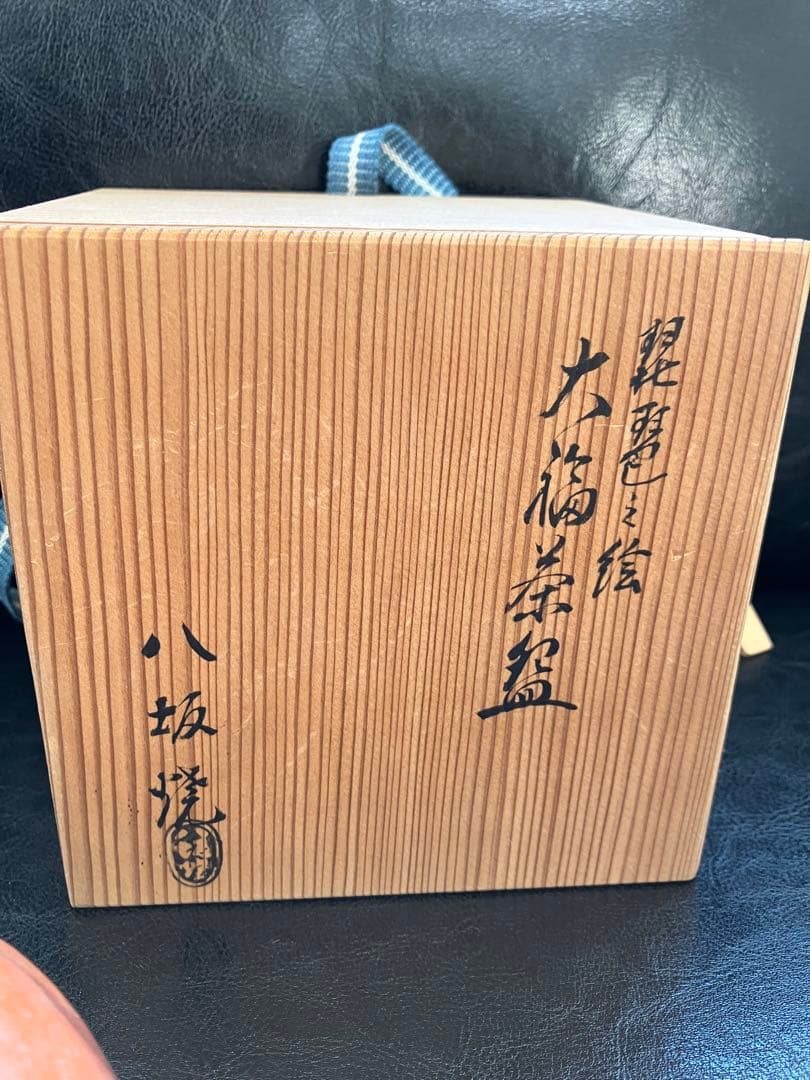 琵琶之絵
大福茶盌
八坂焼